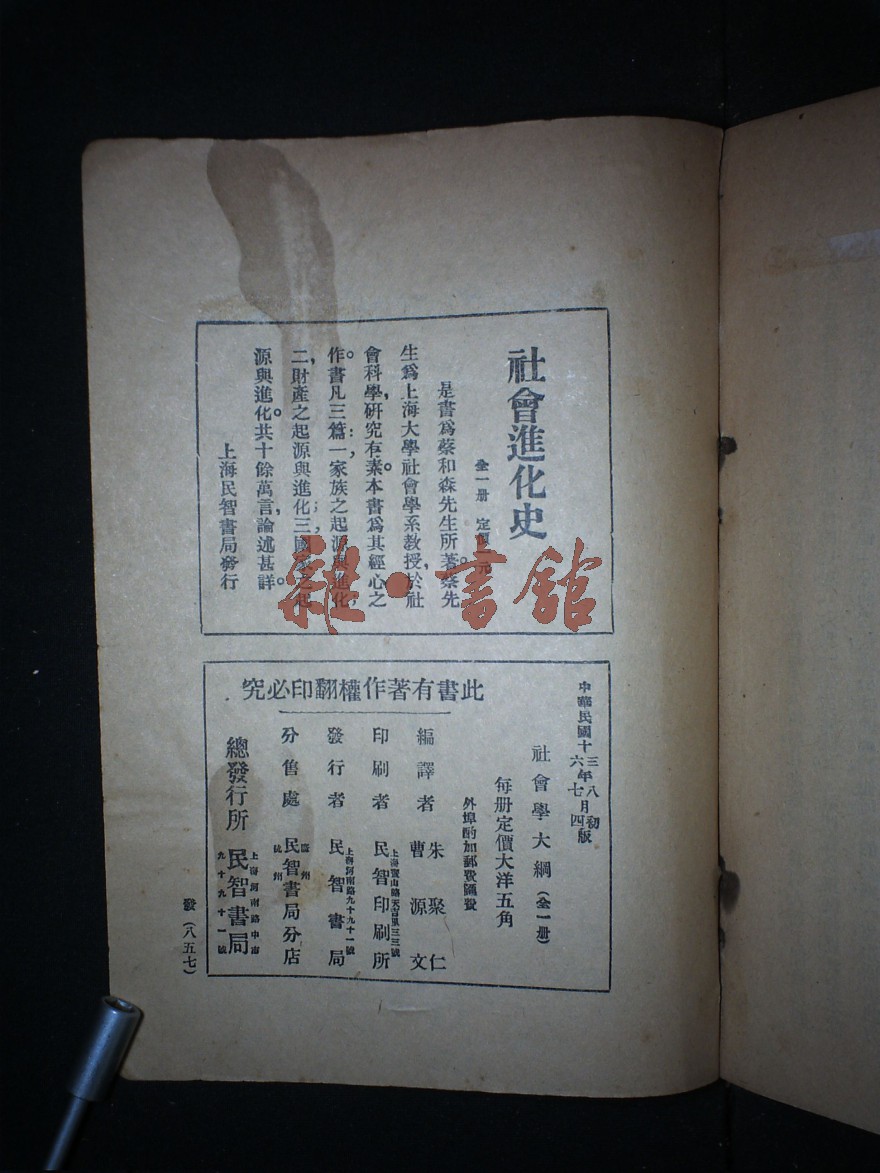 社會進化史
全一册　定價一元
是書爲蔡和森先生所著。蔡先
生爲上海大學社會學系教授，於社
會科學，研究有素。本書爲其經心之
作。書凡三篇：一，家族之起源與進化；
二，財產之起源與進化；三，國家之起
源與進化。共十餘萬言，論述甚詳。
上海民智書局發行
雜·書館
此書有著作權翻印必究
中華民國十三年八月初版
十六年七月四版
社會學大綱（全一册）
每册定價大洋五角
外埠酌加郵費匯費
編譯者　朱聚仁
曹源文
印刷者　上海寶山路天吉里三三號
民智印刷所
發行者　上海河南路九十九十一號
民智書局
分售處　廣州
杭州
民智書局分店
總發行所　上海河南路中市
九十九十一號
民智書局
發（八五七）